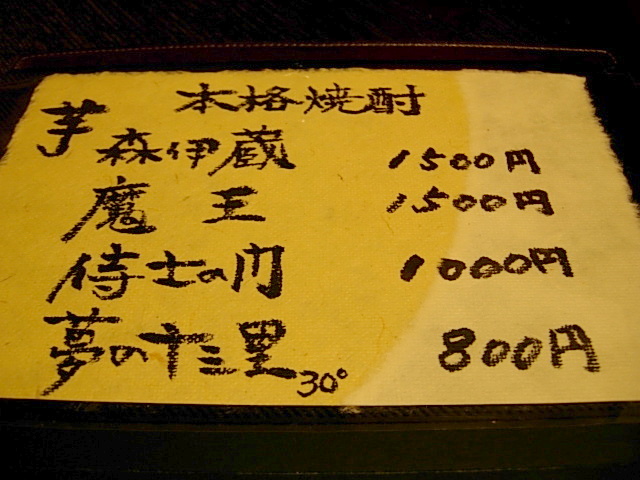 本格焼酎
芋
森伊蔵 1500円
魔王 1500円
侍士の门 1000円
夢の十三里 30° 800円